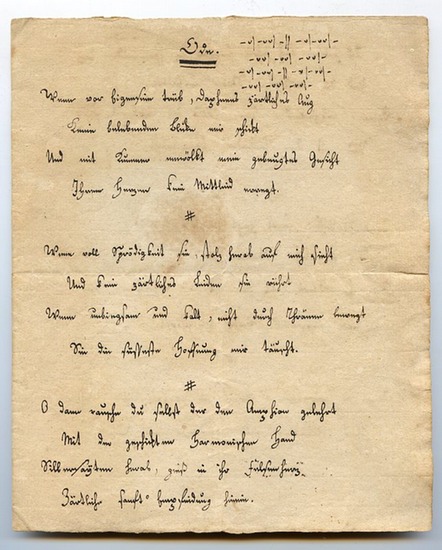 Ode.
Wenn vor Eigensinn taub, Daphnens zärtliches Aug
Keine belebenden Blicke mir schickt
Und mit Kummer umwölkt mein gebeugtes Gesicht
Ihrem Herzen kein Mittleid erregt.
#
Wenn voll Sprödigkeit sie, stolz herab auf mich sieht
Und kein zärtliches Leiden sie rührt
Wenn unbiegsam und kalt, nicht durch Thränen bewegt
Sie die süsseste Hoffnung mir täuscht.
#
O dann rausche du selbst der den Amphion gelehrt
Mit der geschickten harmonischen Hand
Silbersayten herab, gieß in ihr Felsenherz
Zärtliche sanfte Empfindung hinein.